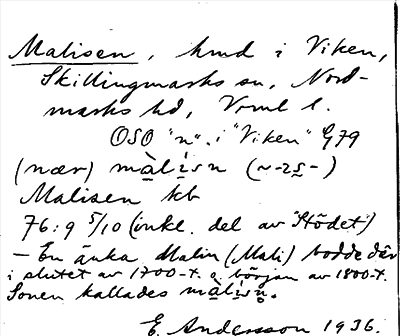 Malisen, hmd i Viken,
Skillingmarks sn, Nord-
marks hd, Vrml l.
OSO "n". i "Viken" G79
(nær) màlisn (~-2s-)
Malisen kb
76:9 5/10 (inkl. del av "Stödet")
– En änka Malin (Mali) bodde där
i slutet av 1700-t. o. början av 1800-t.
Sonen kallades màlisn.
E. Andersson 1936.